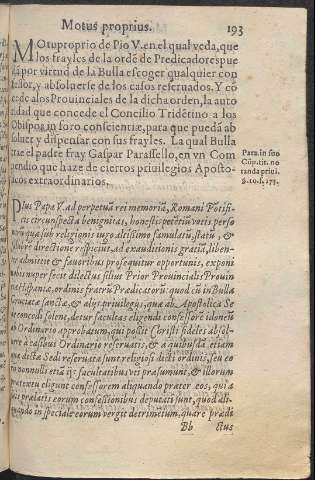 Motus proprius.
193
MOtuproprio de Pio V. en el qual veda, que
los frayles de la ordẽ de Predicadores pue
dã por virtud de la Bulla escoger qualquier con
fessor, y absoluerse de los casos reseruados. Y cõ
cede a los Prouinciales de la dicha orden, la auto
ridad que concede el Concilio Tridẽtino a los
Obispos in foro conscientiæ, para que puedã ab
soluer y dispensar con sus frayles. La qual Bulla
trae el padre fray Gaspar Parassello, en vn Com
pendio que haze de ciertos priuilegios Aposto-
licos extraordinarios.
Para. in suo
Cõp. tit. no
randa priui.
Pius Papa V. ad perpetuã rei memoriã, Romani Põtifi-
cis circunspecta benignitas, honestis petẽtiũ votis perso
narũ quæ sub religionis iugo altissimo famulatũ, statũ, &
directione respicit, ad exauditionis gratiã, liben-
ter admittit & fauoribus prosequitur opportunis, exponi
nobis nuper fecit dilectus filius Prior Prouincialis Prouin
ciæ Hispaniæ, ordinis fratrũ Prædicatorũ quod cũ in Bulla
Cruciatæ sanctæ, & alijs priuilegijs, quæ ab Apostolica Se
de concedi solent, detur facultas eligendi confessorẽ idoneũ
ab Ordinario approbatum, qui possit Christi fideles absol-
uere a casibus Ordinario reseruatis, & a quibusdã etiam
dictæ Sedi reseruatis sunt religiosi dicti ordinis, seu eo
rũ nonnulli etiã ijs facultatibus vti præsumunt, & illorum
prætextu eligunt confessorem aliquando præter eos, qui a
suis prælatis eorum confessionibus deputati sunt, quod ali-
quando in speciale eorum vergit detrimetum, quare prædi
Bb
ctus